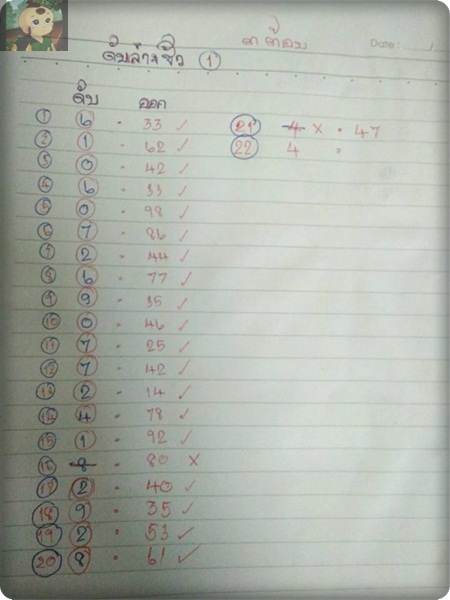 ต.ต้อม Date :
ดับล่างชัว ①
ดับ ออก
① 6 - 33 ✓ ㉑ 4 × - 47
② 1 - 62 ✓ ㉒ 4 =
③ 0 - 42 ✓
④ 6 - 33 ✓
⑤ 0 - 98 ✓
⑥ 7 - 86 ✓
⑦ 2 - 44 ✓
⑧ 6 - 77 ✓
⑨ 9 - 35 ✓
⑩ 0 - 46 ✓
⑪ 7 - 25 ✓
⑫ 7 - 42 ✓
⑬ 2 - 14 ✓
⑭ 4 - 78 ✓
⑮ 1 - 92 ✓
⑯ 8 - 80 ×
⑰ 2 - 40 ✓
⑱ 9 - 35 ✓
⑲ 2 - 53 ✓
⑳ 8 = 61 ✓